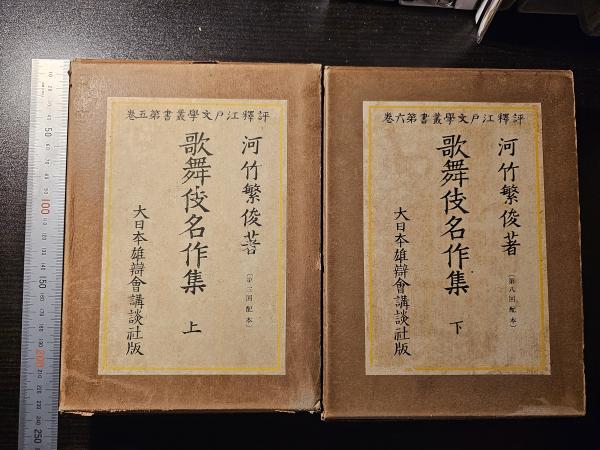 評釋江戸文學叢書第五卷
河竹繁俊著
〔第二回配本〕
歌舞伎名作集 上
大日本雄辯會講談社版
評釋江戸文學叢書第六卷
河竹繁俊著
〔第八回配本〕
歌舞伎名作集 下
大日本雄辯會講談社版
50
100
200
250